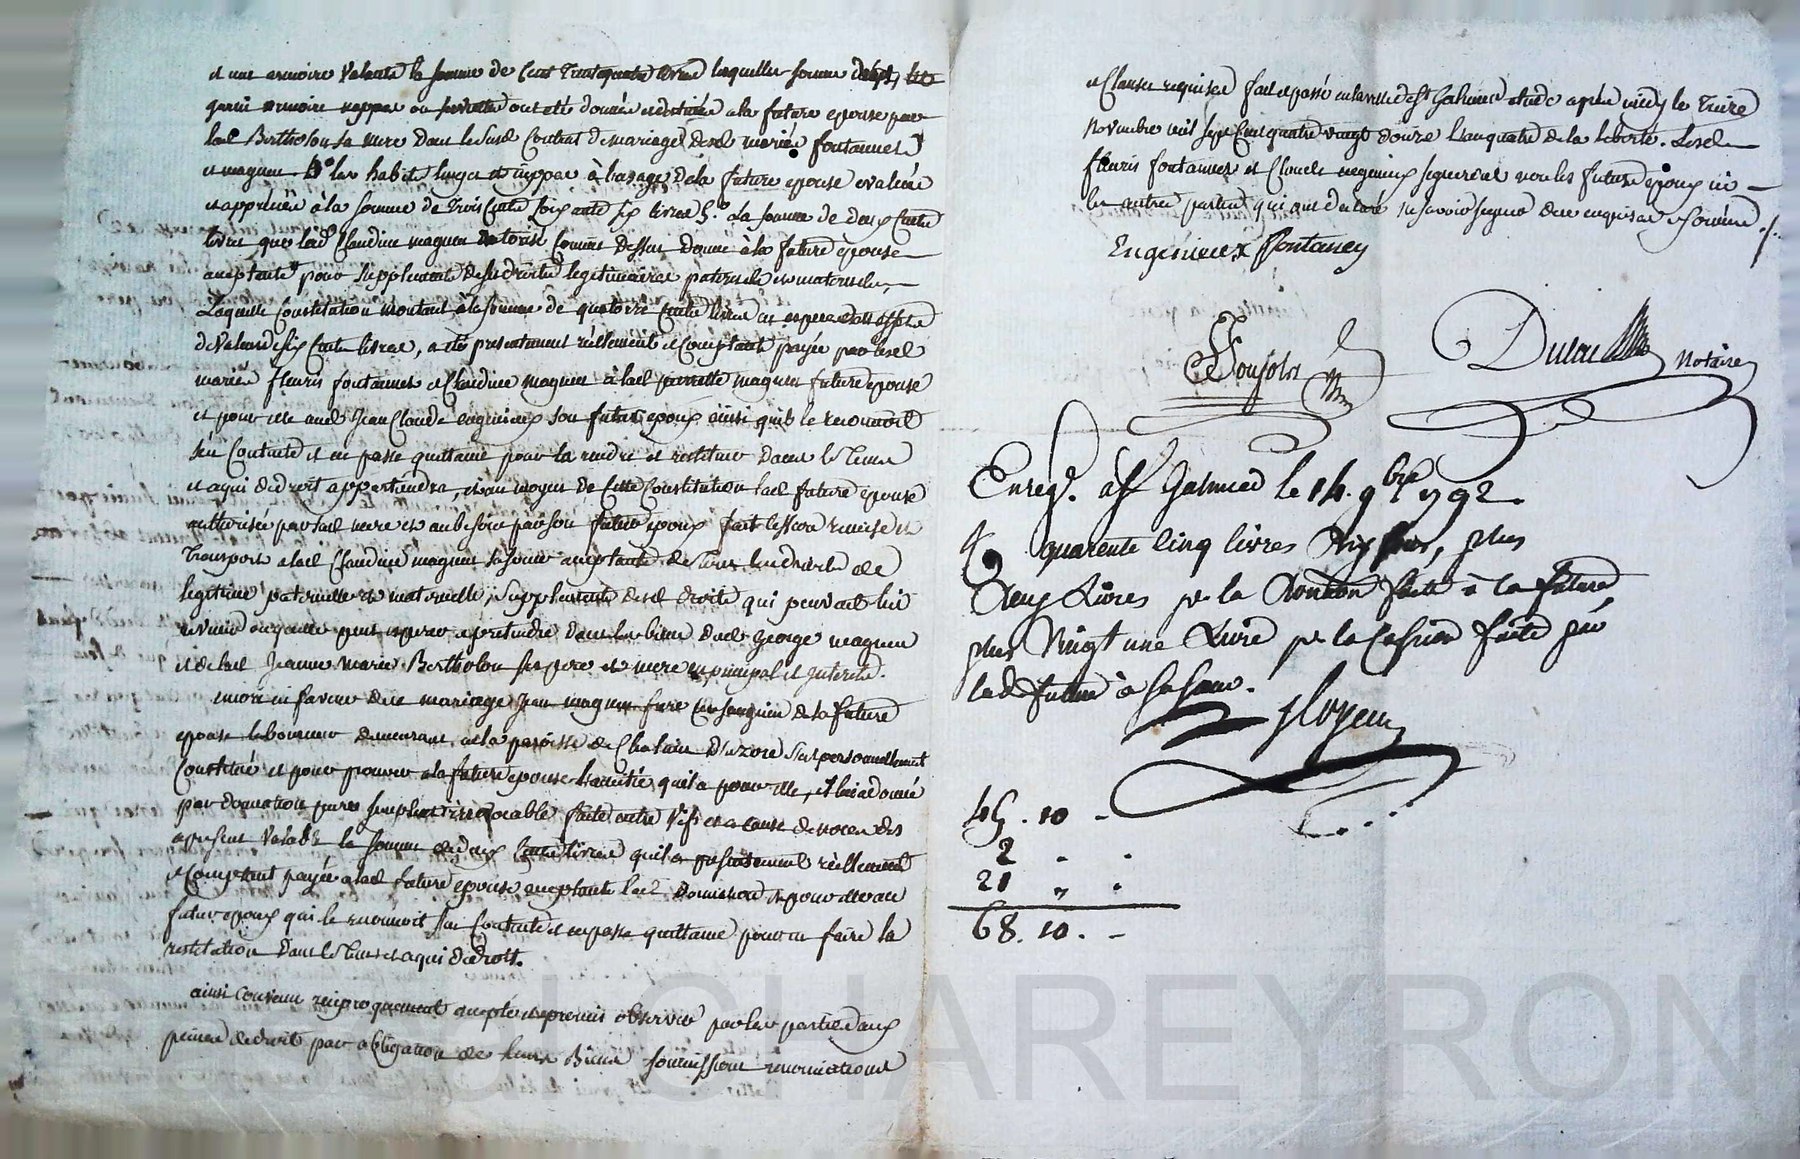 et une armoire valante la somme de Cent Trente quatre livres lesquelles somme
garni armoire nappes ou serviettes ont été donnée à la future epouse par
lad Bertholon sa mere dans le susd Contrat de mariage desd mariés fontannes
et magnien les habits linges et nippes à l'usage de la future epouse evalués
et appreciés à la somme de Trois Cents Soixante six livres 5.° La somme de deux Cents
livres que lad Claudine magnien Comme dessus donne à la future epouse
acceptante pour supplement de ses droits legitimaires paternels et maternels,
Laquelle Constitution montant à la somme de quatorze Cents livres en espece
de valeur de six Cents livres, a été presentement réellement et Comptant payée par lesd
mariés fleuris fontannes et Claudine magnien à lad pierrette magnien future epouse
et pour elle aud Jean Claude engenieux son futur epoux ainsi qu'ils le reconnoit
s'en Contente et en passe quittance pour la rendre et restituer dans le Tems
et a qui de droit appartiendra, et au moyen de Cette Constitution lad future epouse
authorisée par sad mere et au besoin par son futur epoux fait Cession remise et
Transport a lad Claudine magnien sa soeur acceptante de Tous les droits de
legitime paternelle et maternelle, supplement desd droits qui peuvent lui
revenir ou quelle peut esperer et pretendre dans les biens dud George magnien
et de lad Jeanne Marie Bertholon ses pere et mere en principal et interets.
encore en faveur de ce mariage Jean magnien frere Consanguin de la future
epouse laboureur demeurant en la paroisse de Chalain D'uzore s'est personnellement
Constitué et pour prouver a la future epouse L'amitié qu'il a pour elle, il lui a donné
par donnation pure simple et irrevocable faite entre vifs et a cause de noces des
apresent valable la somme de deux Cents livres qu'il a presentement réellement
et Comptant payée a lad future epouse acceptante lad donnation et pour elle au
futur epoux qui le reconnoit s'en Contente et en passe quittance pour en faire la
restitution dans le Tems et a qui de droit.
ainsi convenu reciproquement accepté et promis observer par les parties aux
peines de droit par obligation de leurs Biens soumissions renonciations
et Clauses requises fait et passé en la ville de St Galmier etude après midy le Treize
Novembre mil sept Cent quatre vingt douze L'an quatre de la liberté. Lesd
fleuris fontannes et Claude engenieux signeront non les future epoux ni
les autres parties qui ont declaré ne savoir signer de ce enquises et sommés ./.
Engenieux ffontaney
Poujols
notaire
Enreg. a St Galmier le 14. 9bre 1792.
R quarente Cinq livres dix sous, plus
deux Livres pr la donation faite à la future,
plus vingt une Livre pr la Cession faite par
lad. future à sa soeur.
45 . 10 -
2 " .
21 " .
68. 10. -
CHAREYRON